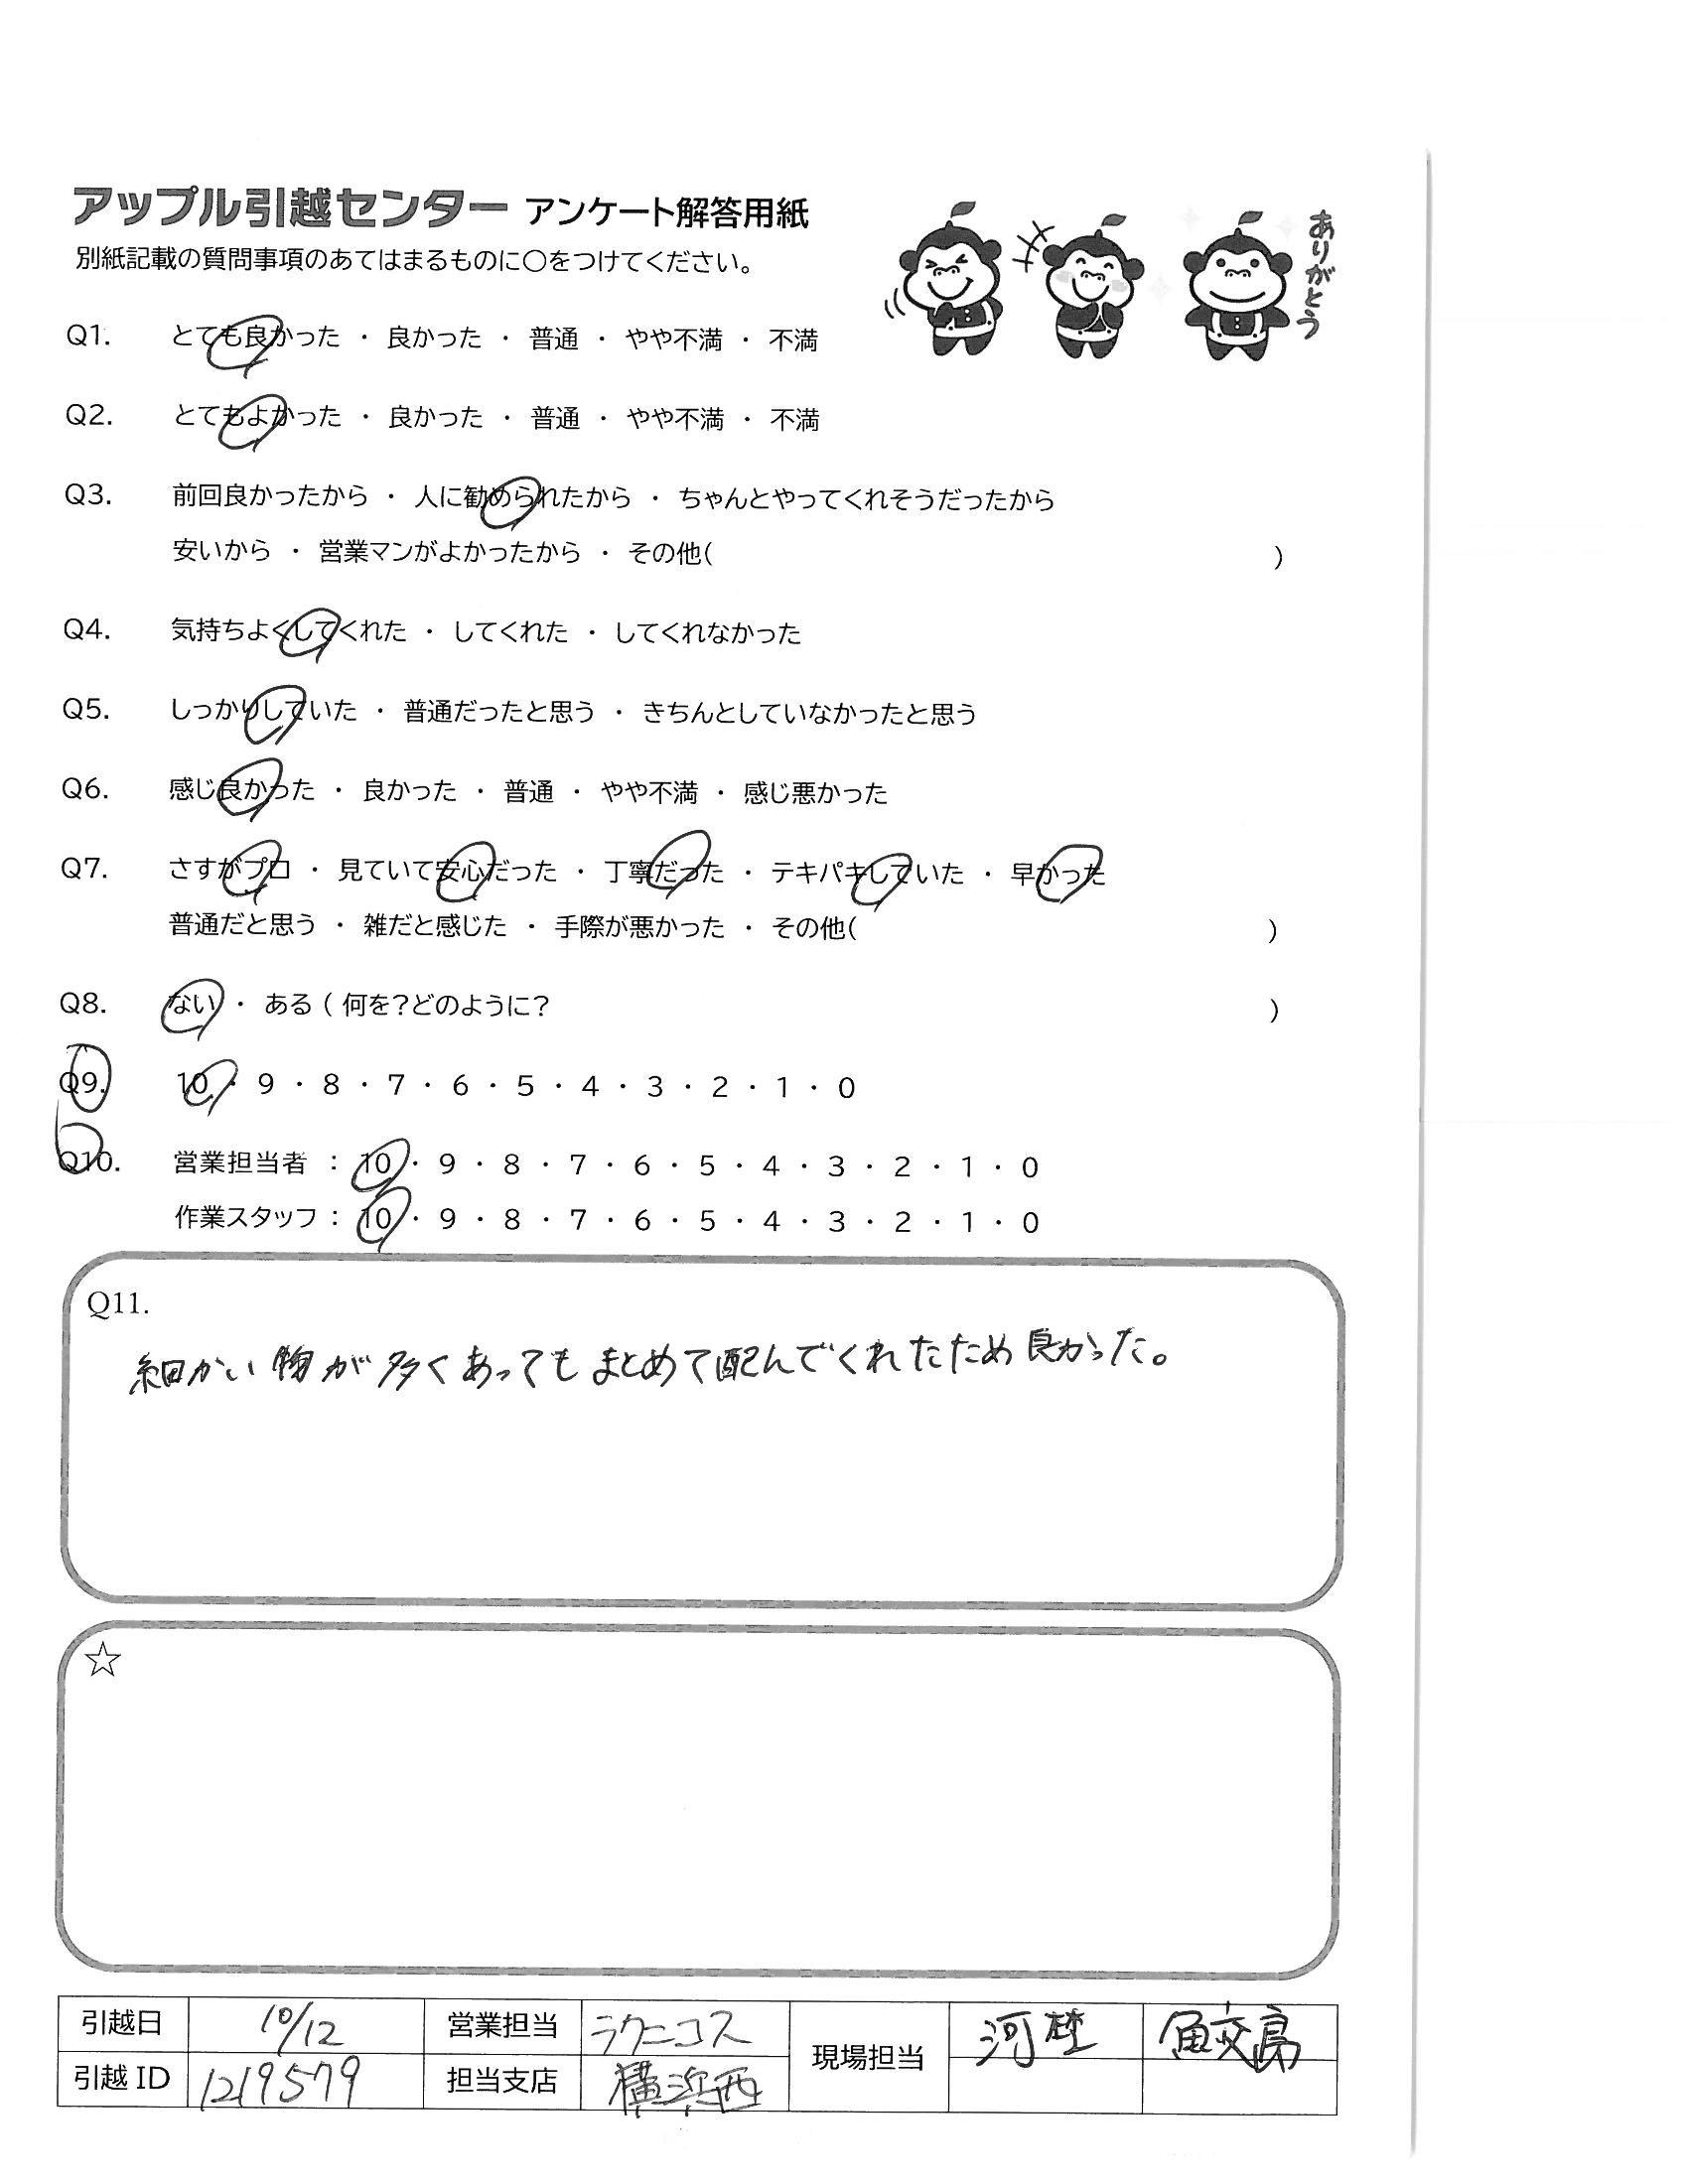 アップル引越センター アンケート解答用紙
別紙記載の質問事項のあてはまるものに○をつけてください。
ありがとう
Q1. とても良かった ・ 良かった ・ 普通 ・ やや不満 ・ 不満
Q2. とてもよかった ・ 良かった ・ 普通 ・ やや不満 ・ 不満
Q3. 前回良かったから ・ 人に勧められたから ・ ちゃんとやってくれそうだったから
安いから ・ 営業マンがよかったから ・ その他( )
Q4. 気持ちよくしてくれた ・ してくれた ・ してくれなかった
Q5. しっかりしていた ・ 普通だったと思う ・ きちんとしていなかったと思う
Q6. 感じ良かった ・ 良かった ・ 普通 ・ やや不満 ・ 感じ悪かった
Q7. さすがプロ ・ 見ていて安心だった ・ 丁寧だった ・ テキパキしていた ・ 早かった
普通だと思う ・ 雑だと感じた ・ 手際が悪かった ・ その他( )
Q8. ない ・ ある ( 何を？どのように？ )
Q9. 10 ・ 9 ・ 8 ・ 7 ・ 6 ・ 5 ・ 4 ・ 3 ・ 2 ・ 1 ・ 0
Q10. 営業担当者 ： 10 ・ 9 ・ 8 ・ 7 ・ 6 ・ 5 ・ 4 ・ 3 ・ 2 ・ 1 ・ 0
作業スタッフ： 10 ・ 9 ・ 8 ・ 7 ・ 6 ・ 5 ・ 4 ・ 3 ・ 2 ・ 1 ・ 0
Q11.
細かい物が多くあってもまとめて配んでくれたため良かった。
☆
引越日 10/12 営業担当 ラクニコス 現場担当 河埜 鮫島
引越ID 1219579 担当支店 横浜西